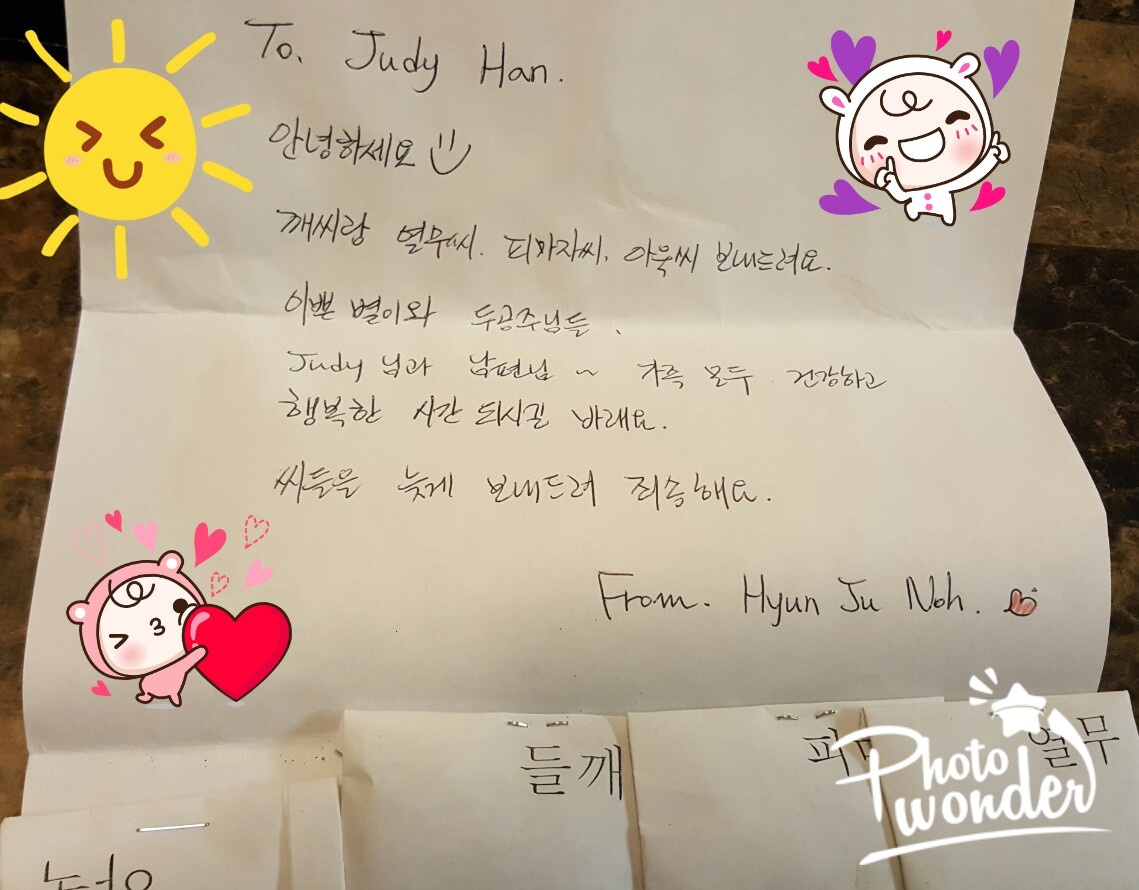 To. Judy Han.
안녕하세요
깨씨랑 열무씨. 피마자씨. 아욱씨 보내드려요.
이쁜 별이와 두공주님들.
Judy 님과 남편님 ~ 가족 모두 건강하고
행복한 시간 되시길 바래요.
씨들을 늦게 보내드려 죄송해요.
From. Hyun Ju Noh.
들깨
피
열무
Photo
wonder